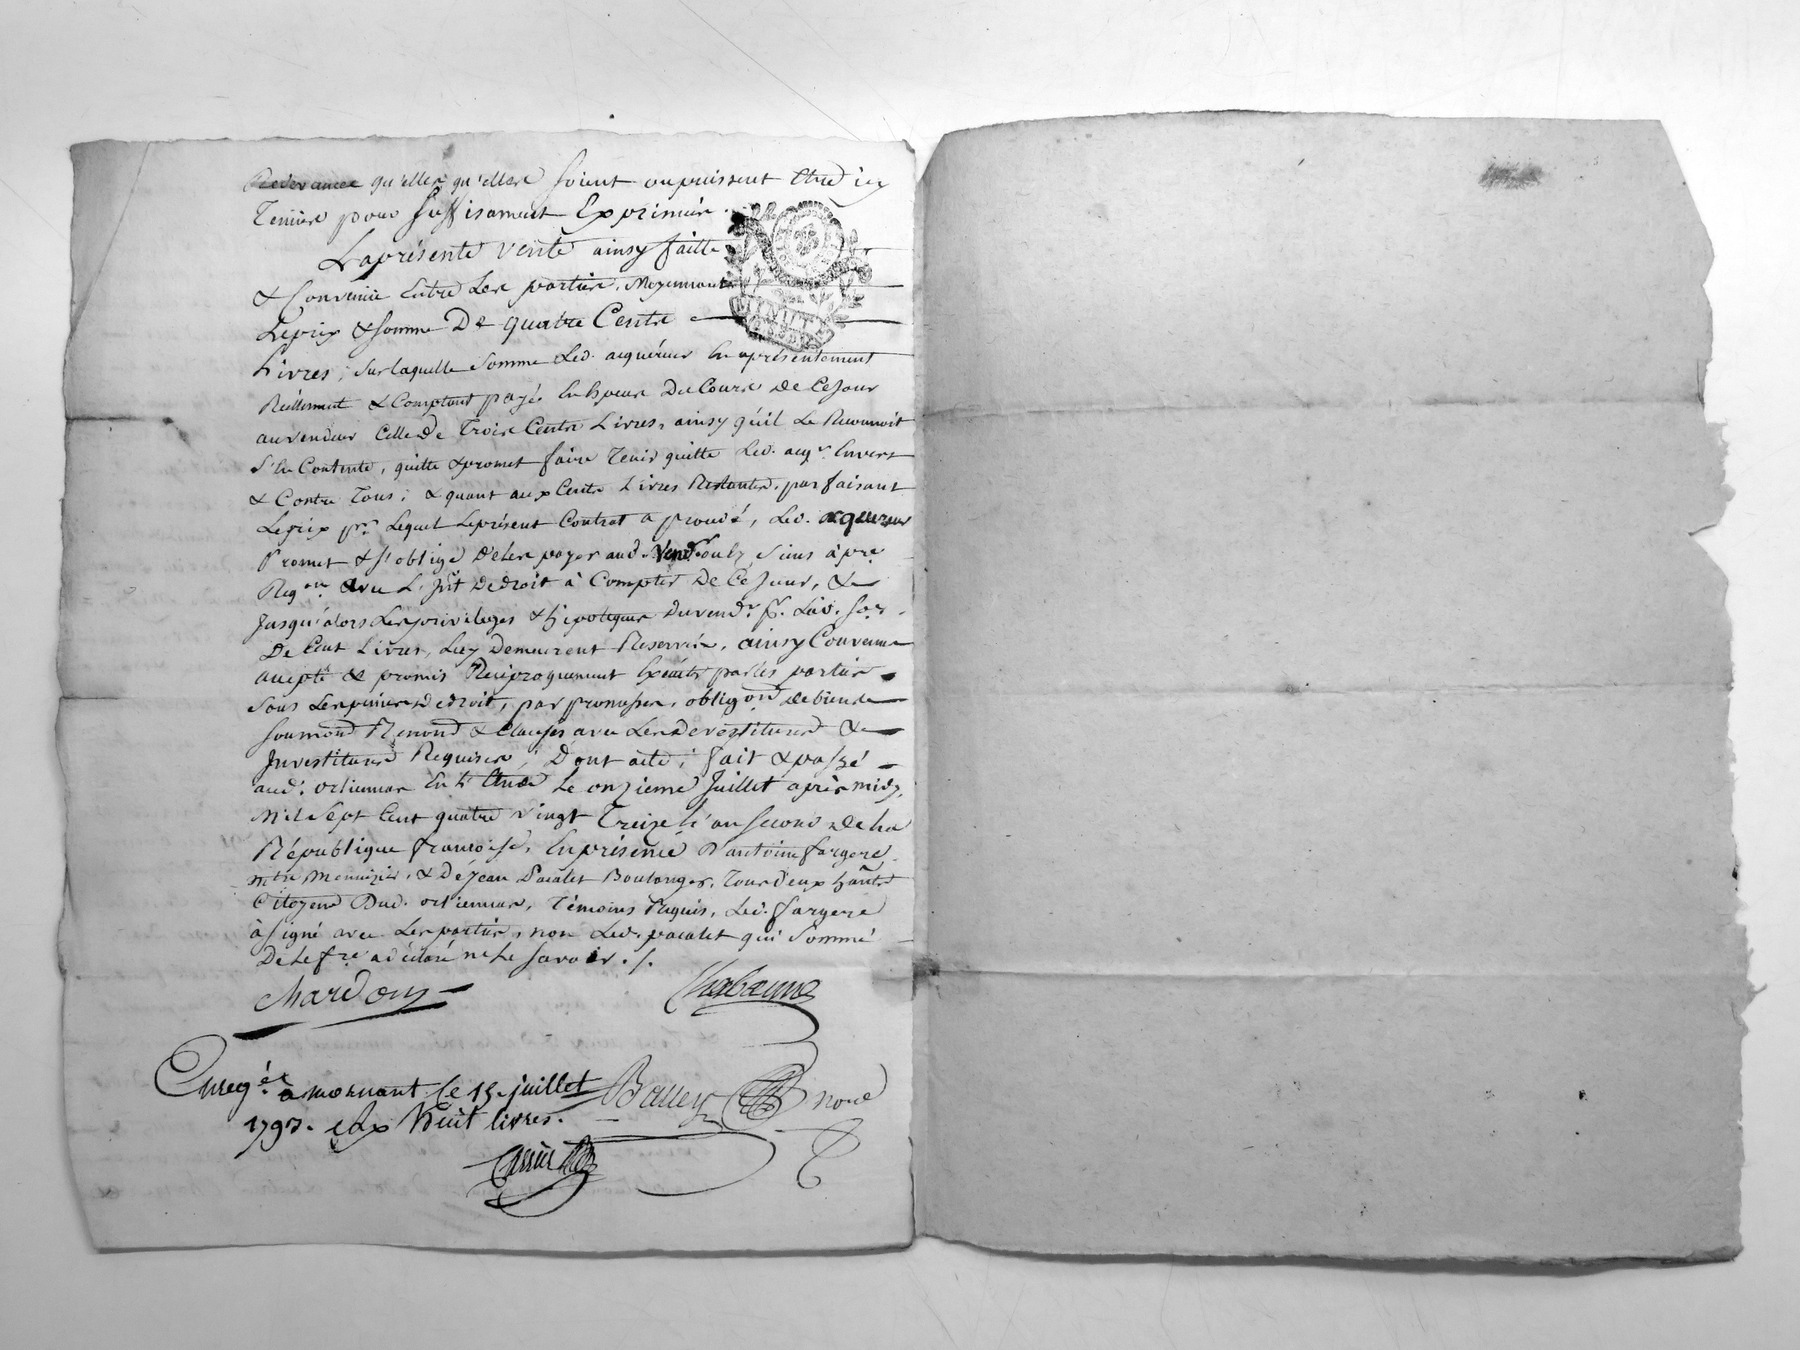 Redevance qu'elles qu'elles soient ou puissent être icy
Tenües pour suffisament Exprimées.
La présente vente ainsy faitte
& Convenüe Entre Les parties, Moyennant
Le prix & somme De quatre Cents
Livres, sur laquelle somme Led. acquéreur En a présentement
Réellement & Comptant payé En Espèces Du Cours De Ce Jour
au vendeur Celle De Trois Cents Livres, ainsy qu'il Le Reconnoit
S'En Contente, quitte & promet faire Tenir quitte Led. acqr. Envers
& Contre Tous; & quant aux Cents Livres Restantes, parfaisant
Le prix pr. Lequel Le présent Contrat a procédé, Led. acquereur
Promet & s'oblige De Les payer aud. Vendr. ou Es Siens à pre.
Reqon. avec L'jnt De droit à Compter De Ce Jour, &
Jusqu'alors Les privileges & hipoteques Du vendr. pr. Lad. soe.
De Cent Livres, Luy Demeurent Reservés, ainsy Convenu
accepté & promis Réciproquement Exécuter par les parties
Sous Les peines De droit, par promesses, obligons De biens
soumons Renons & Clauses avec Les Devestitures &
Investitures Requises; Dont acte; fait & passé
aud. orliennas En l'Etude Le onzieme Juillet après midy,
Mil Sept Cent quatre vingt Treize L'an second De La
République françoise, En présence D'antoine fargere
mtre Menuizier, & De Jean Pacalet Boulanger, Tous Deux habts
Citoyens Dud. orliennas, Témoins Requis, Led. fargere
à signé avec Les parties, non Led. pacalet qui Sommé
De Le fre. a déclaré ne Le savoir ./.
Chardon Chabanne
Enregé. à mornant le 15. juillet
1793. Huit livres.